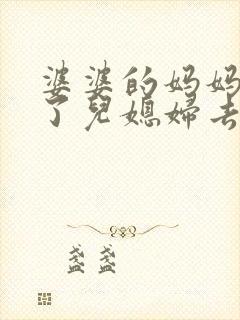 婆婆的妈妈
了儿媳妇去
盏盏